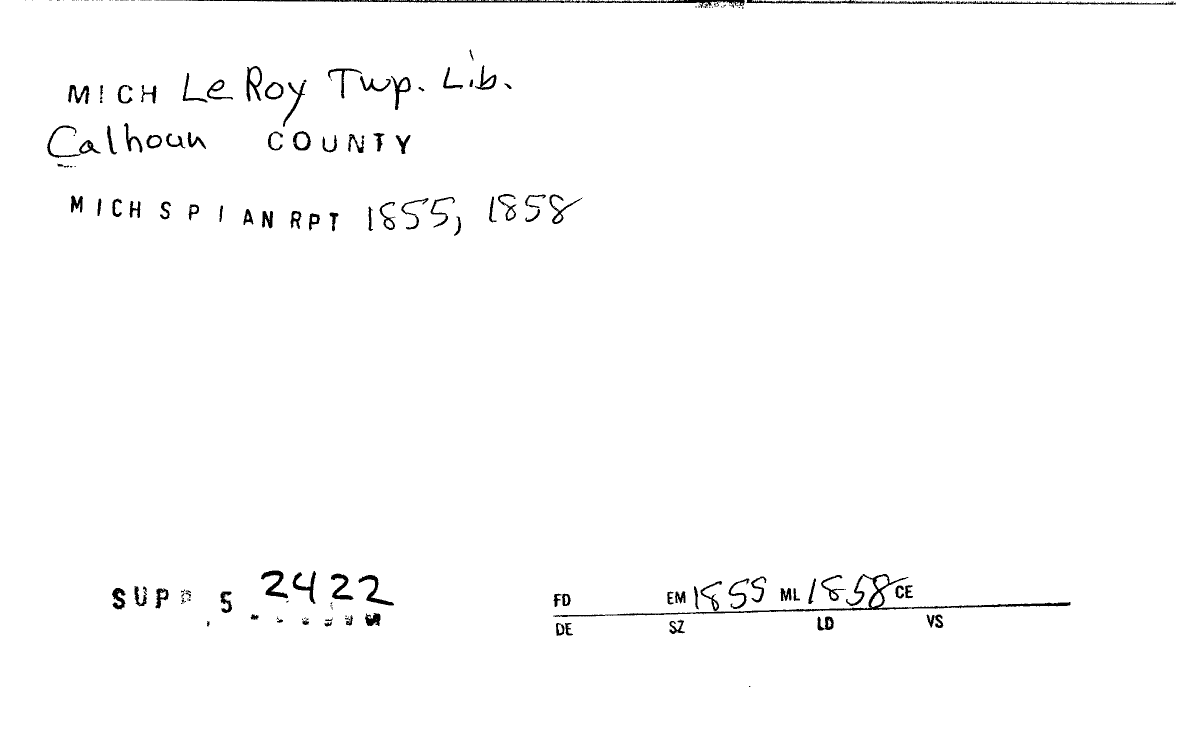 MICH Le Roy Twp. Lib.
Calhoun COUNTY
MICH S P I AN RPT 1855, 1858
SUPP 5 2422
FD EM 1855 ML 1858 CE
DE SZ LD VS